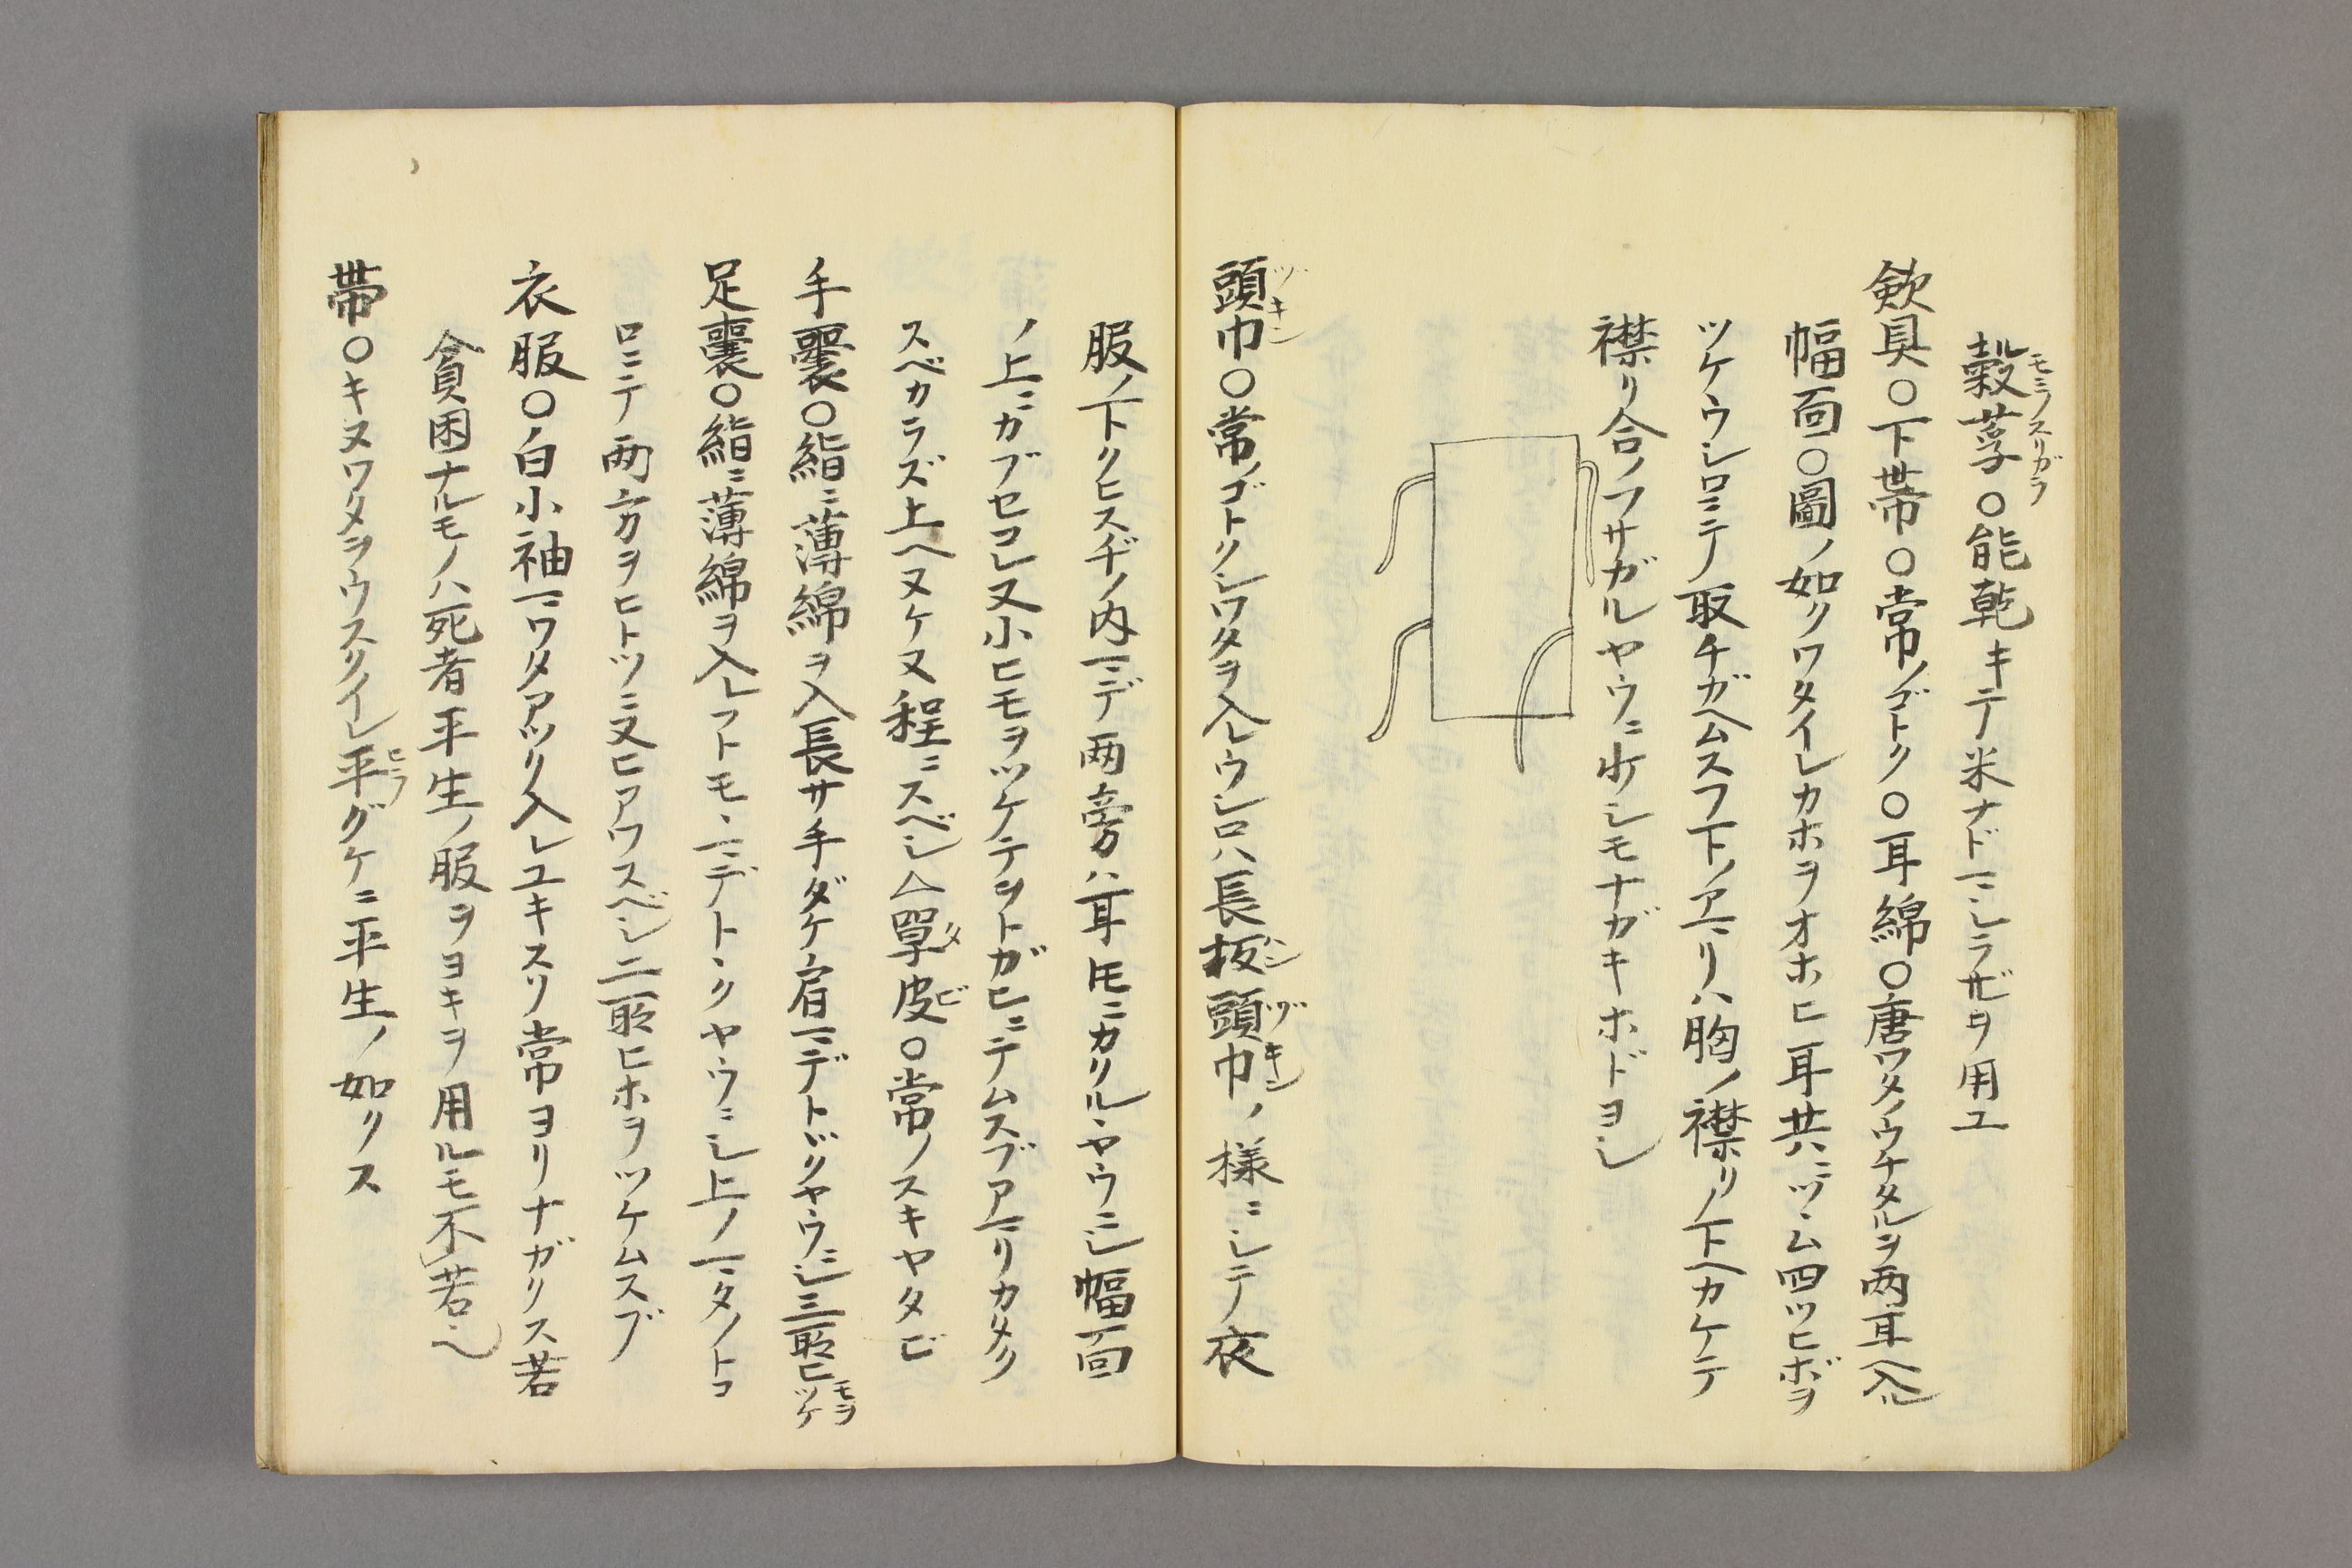 穀莩〇能乾キテ米ナドマシラザヲ用ユ
モミノスリガラ
歛具〇下帯〇常ノゴトク〇耳綿〇唐ワタノウチタルヲ両耳入ル
幅面〇圖ノ如クワタイレカホヲオホヒ耳共ニツヽム四ツヒボヲ
ツケウシロニテ取チガヘムスフ下ノアマリハ胸ノ襟リノ下ヘカケテ
襟リ合ノフサガルヤウニ少シモナガキホドヨシ
頭巾〇常ノゴトクシワタヲ入レウシロハ長板頭巾ノ様ニシテ夜
ヅキン
ハン ヅキン
服ノ下クヒスヂノ内マデ両旁ハ耳モニカクルヽヤウニシ幅面
ノ上ニカブセコレ又小ヒモヲツケテヲトガヒニテムスブアマリカタク
スベカラズ上ヘヌケヌ程ニスベシ△單皮〇常ノスキヤタビ
タビ
手囊〇絹ニ薄綿ヲ入長サ手ダケ肩マデトヾクヤウニシ三所ヒモヲツケ
足囊〇絹ニ薄綿ヲ入レフトモヽマデトヽクヤウニシ上ノマタノトコ
ロニテ両方ヲヒトツニヌヒアワスベシ二所ヒホヲツケムスブ
衣服〇白小袖ニワタアツク入レユキスソ常ヨリナガクス若
貪困ナルモノハ死者平生ノ服ヲヨキヲ用ルモ不若シ
帯〇キヌワタヲウスクイレ平グケニ平生ノ如クス
ヒラ